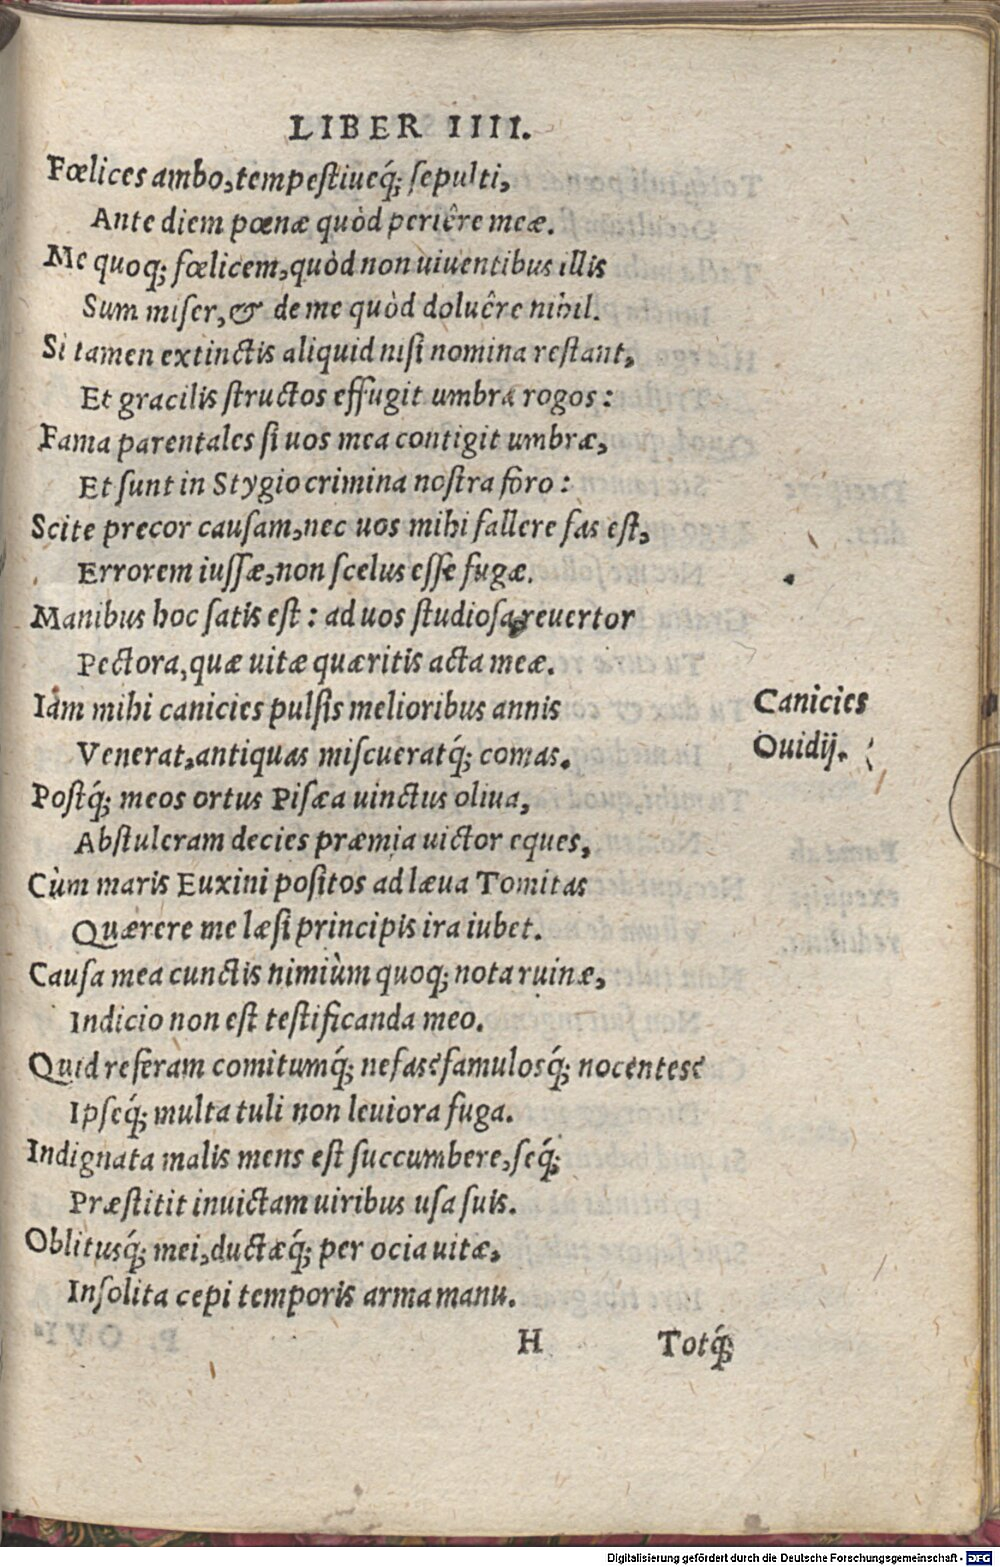 LIBER IIII.
Fœlices ambo, tempestiueq́; sepulti,
Ante diem pœnæ quòd periêre meæ.
Me quoq; fœlicem, quòd non uiuentibus illis
Sum miser, & de me quòd doluêre nihil.
Si tamen extinctis aliquid nisi nomina restant,
Et gracilis structos effugit umbra rogos:
Fama parentales si uos mea contigit umbræ,
Et sunt in Stygio crimina nostra foro:
Scite precor causam, nec uos mihi fallere fas est,
Errorem iussæ, non scelus esse fugæ.
Manibus hoc satis est: ad uos studiosa reuertor
Pectora, quæ uitæ quæritis acta meæ.
Iam mihi canicies pulsis melioribus annis
Venerat, antiquas miscueratq́; comas.
Canicies
Ouidij.
Postq́; meos ortus Pisæa uinctus oliua,
Abstuleram decies præmia uictor eques,
Cùm maris Euxini positos ad læua Tomitas
Quærere me læsi principis ira iubet.
Causa mea cunctis nimiùm quoq; nota ruinæ,
Indicio non est testificanda meo.
Quid referam comitumq́; nefas? famulosq́; nocentes?
Ipseq́; multa tuli non leuiora fuga.
Indignata malis mens est succumbere, seq́;
Præstitit inuictam uiribus usa suis.
Oblitusq́; mei, ductæq́; per ocia uitæ,
Insolita cepi temporis arma manu.
H Totq́;
Digitalisierung gefördert durch die Deutsche Forschungsgemeinschaft - DFG